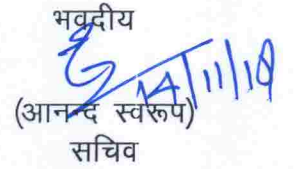 भवदीय
14/11/18
(आनन्द स्वरूप)
सचिव